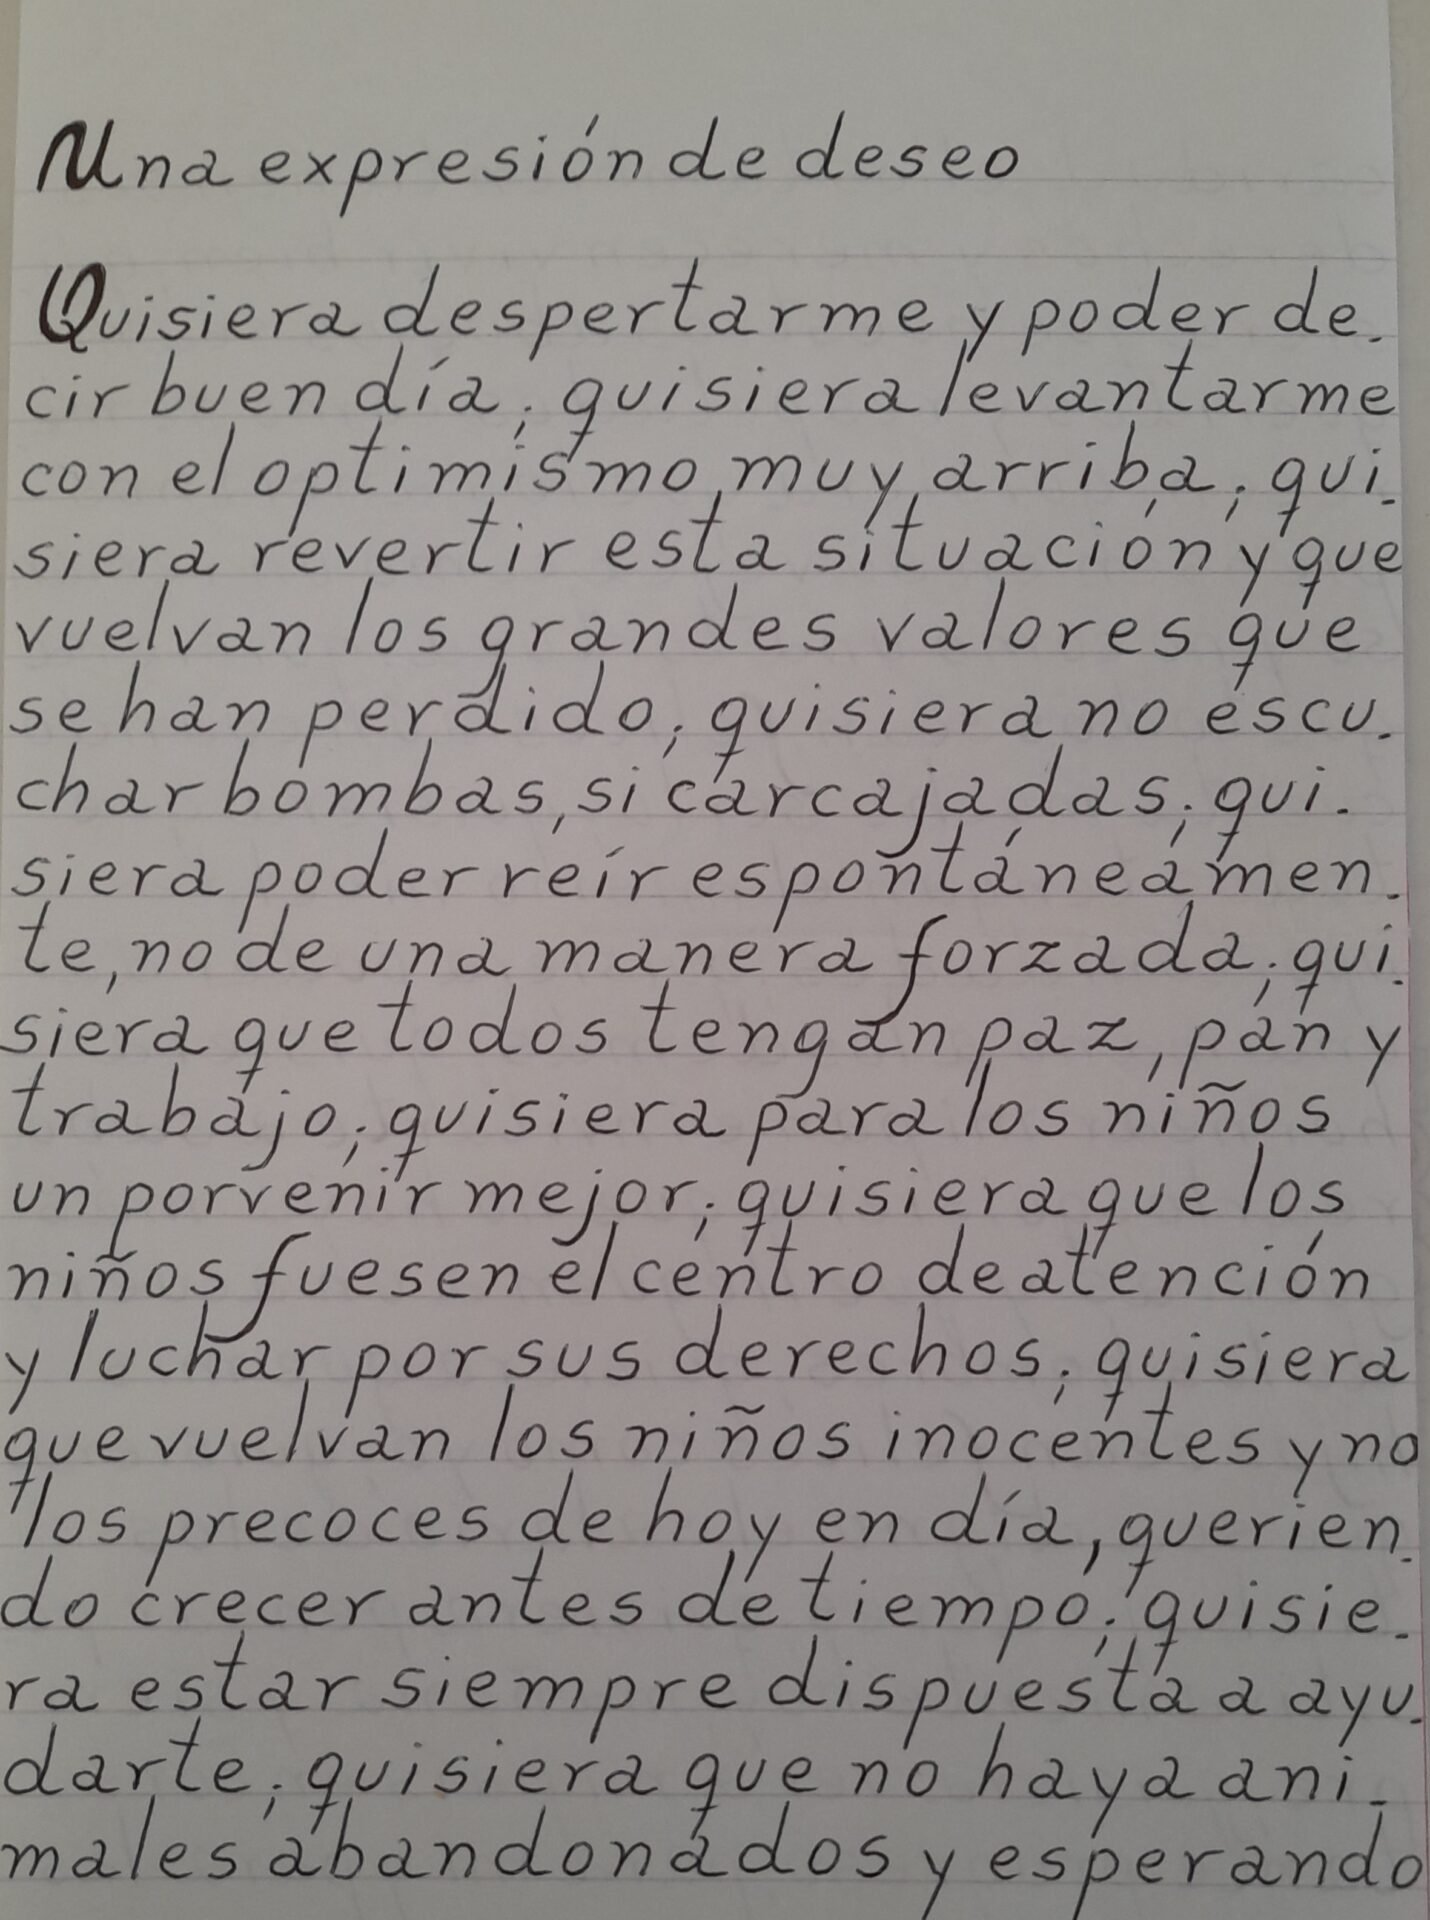 Una expresión de deseo
Quisiera despertarme y poder de-
cir buen día; quisiera levantarme
con el optimismo muy arriba; qui-
siera revertir esta situación y que
vuelvan los grandes valores que
se han perdido; quisiera no escu-
char bombas, si carcajadas; qui-
siera poder reír espontáneamen-
te, no de una manera forzada; qui-
siera que todos tengan paz, pan y
trabajo; quisiera para los niños
un porvenir mejor; quisiera que los
niños fuesen el centro de atención
y luchar por sus derechos; quisiera
que vuelvan los niños inocentes y no
los precoces de hoy en día, querien-
do crecer antes de tiempo; quisie-
ra estar siempre dispuesta a ayu-
darte; quisiera que no haya ani-
males abandonados y esperando